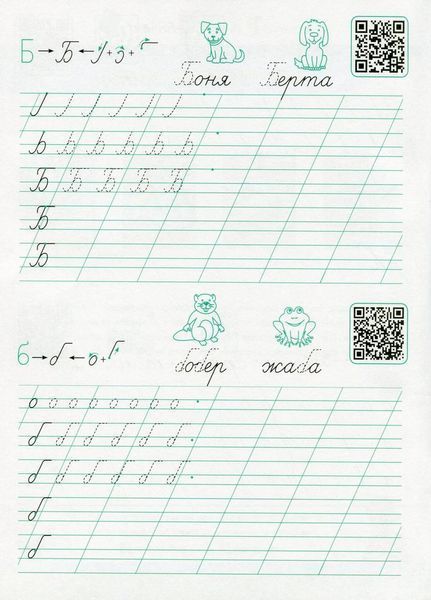 Б → Б ←
Боня Берта
Б Б Б Б Б
Б
Б
б → б ← о +
бобер жаба
о о о о о о о о
б б б б б
б б б б б
б
б